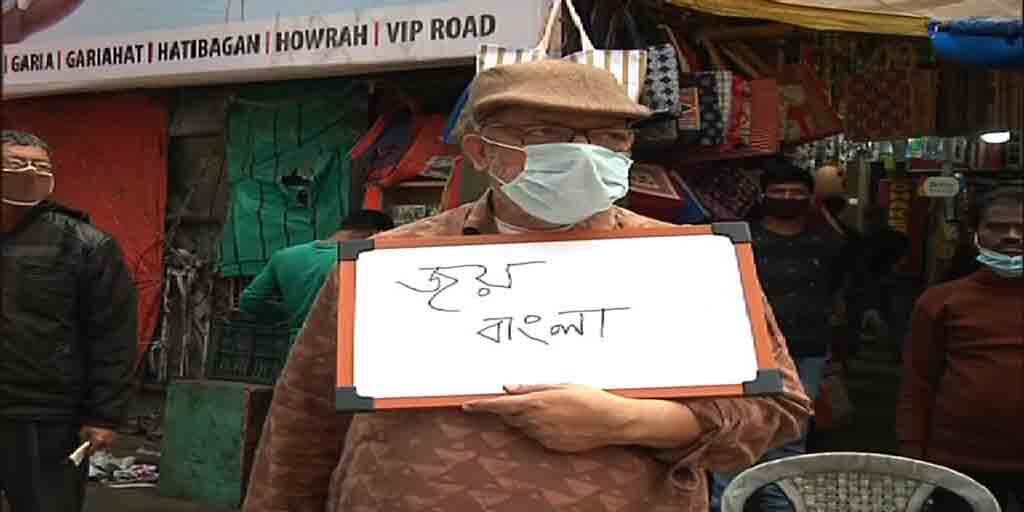 GARIA | GARIAHAT | HATIBAGAN | HOWRAH | VIP ROAD
জয়
বাংলা